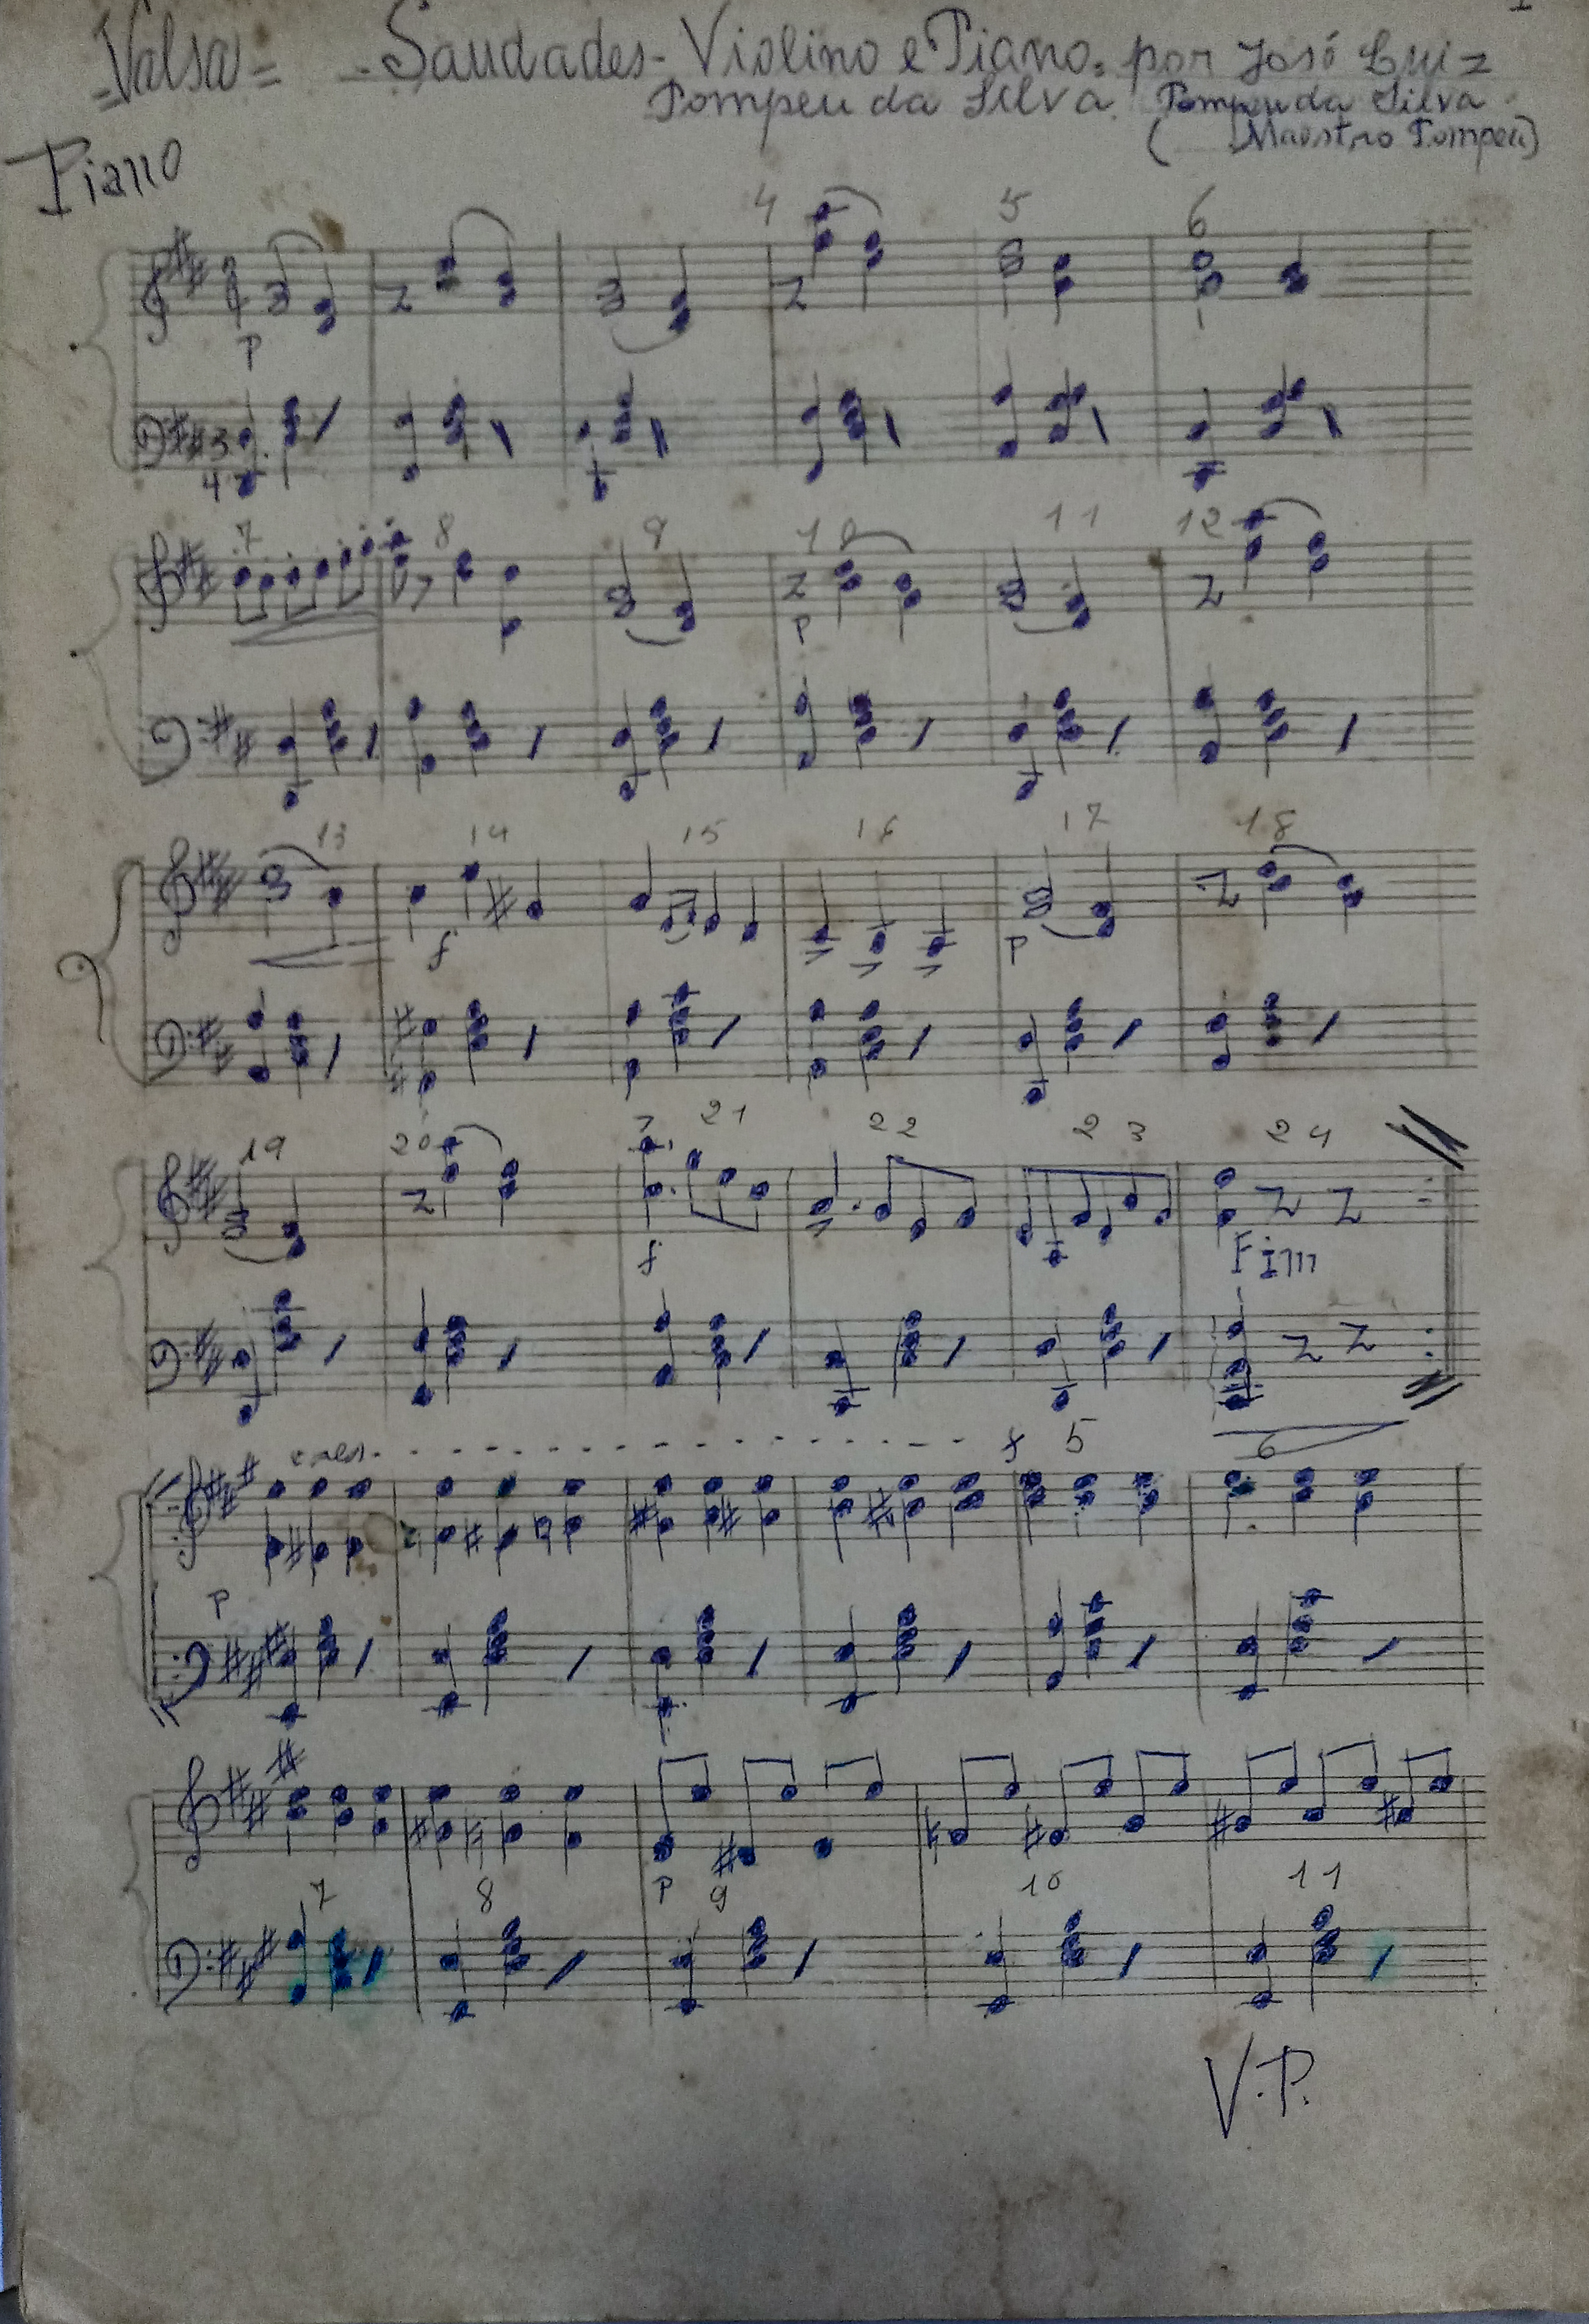 =Valsa= - Saudades - Violino e Piano. por José Luiz
Pompeu da Silva. Pompeu da Silva
( Maestro Pompeu)
Piano
4 5 6
p
3
4
7 8 9 10 11 12
p
13 14 15 16 17 18
f p
19 20 21 22 23 24
f Fim
cres. - - - - - - - - - - - - - - f 5 6
p
p
7 8 9 10 11
V.P.